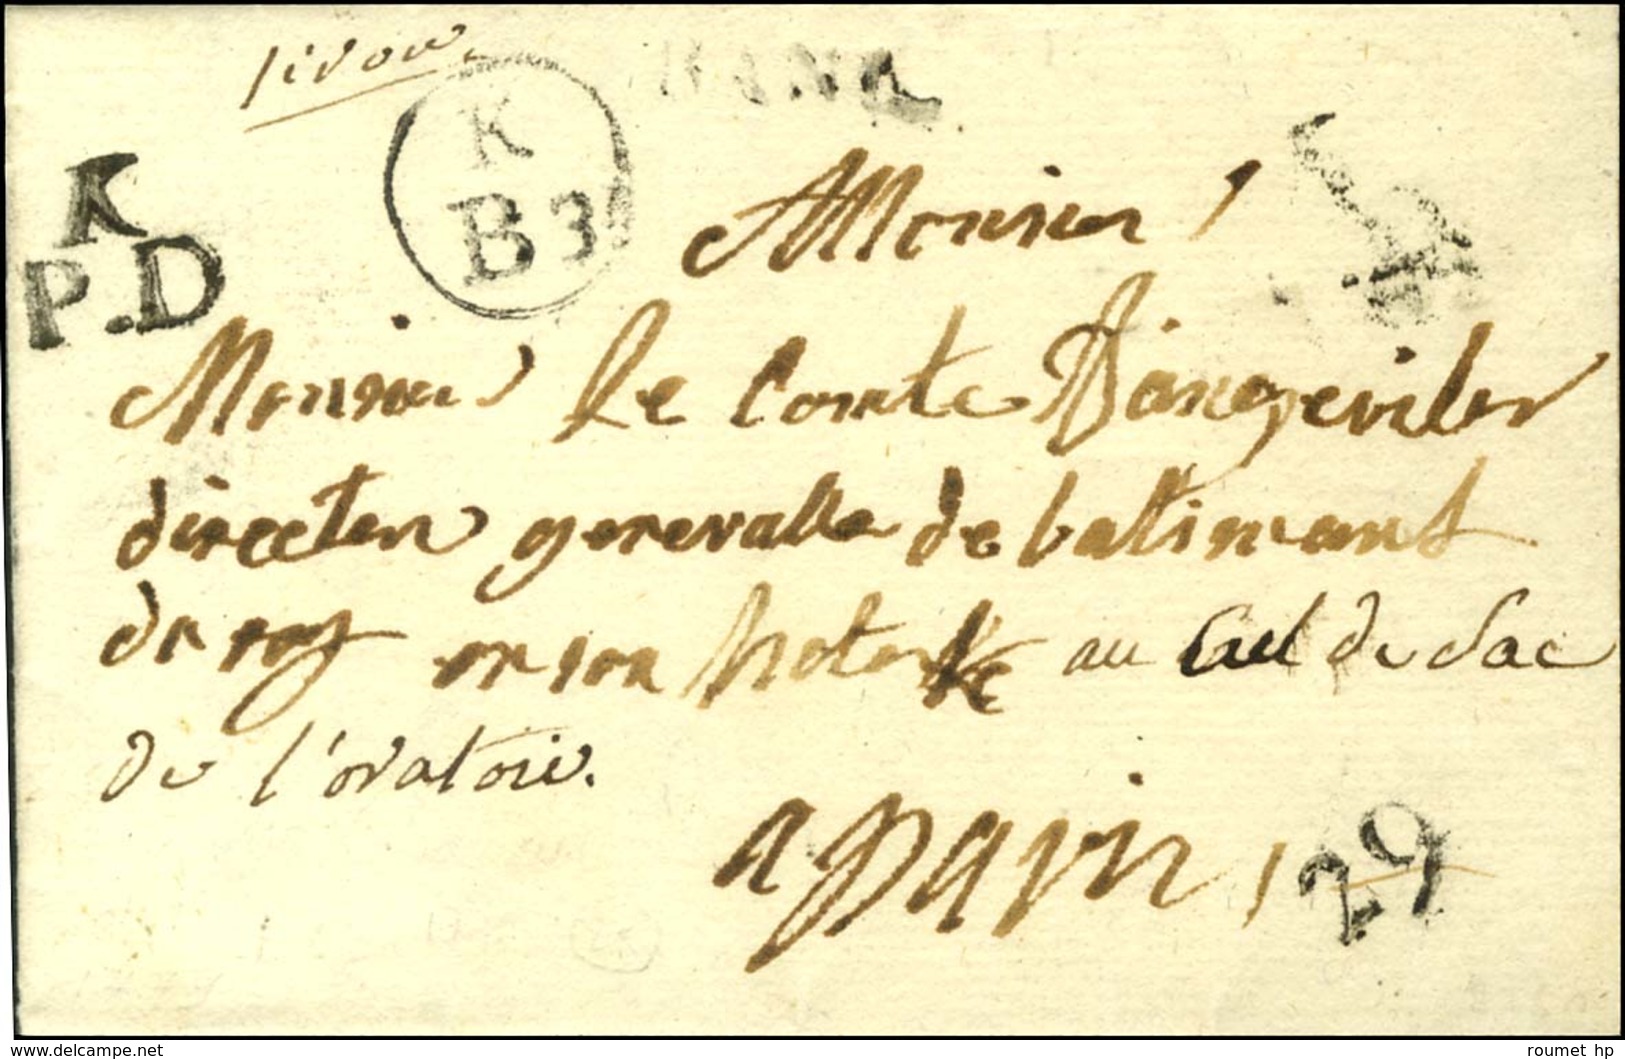 K
B3
K
P.D
Monsieur
Monsieur le comte Dangeviler
directeur generalle de batimans
du roy en son hotel au Cul de Sac
de l'oratoire.
a paris,
29
www.delcampe.net
roumet hp